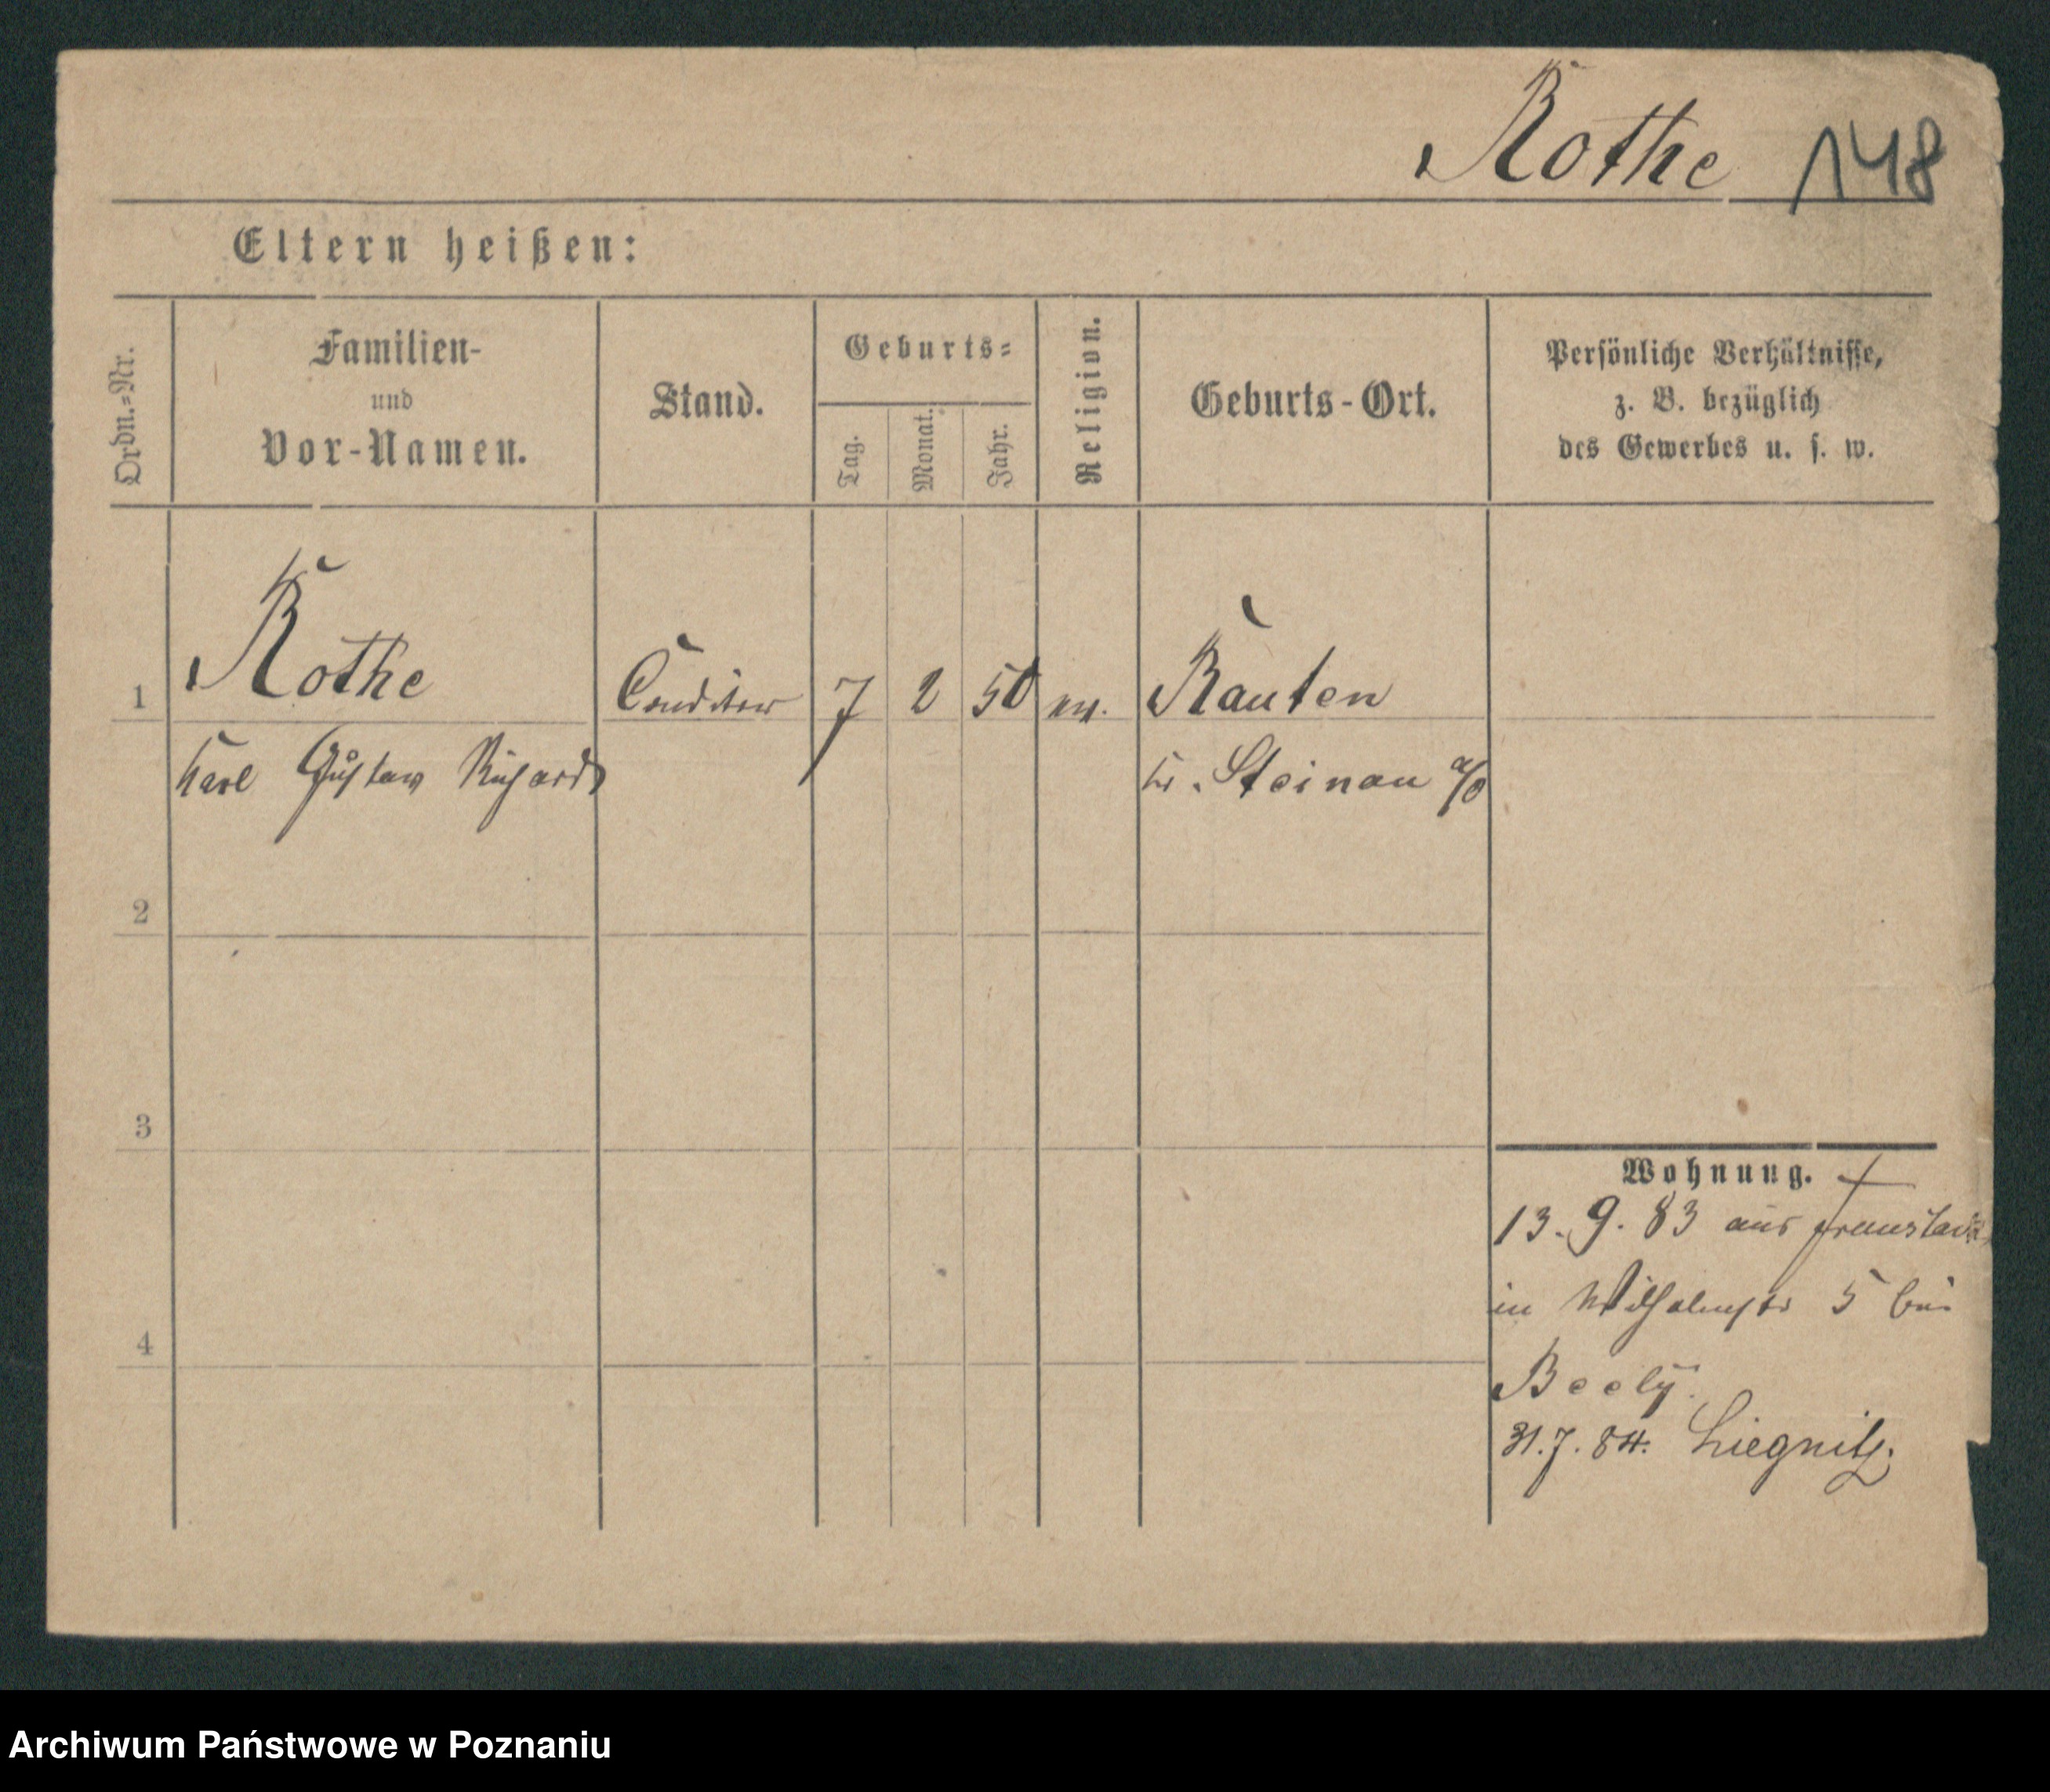 Rothe 148
Eltern heißen:
Ordn.-Nr.
Familien-
und
Vor-Namen.
Stand.
Geburts-
Tag.
Monat.
Jahr.
Religion.
Geburts-Ort.
Persönliche Verhältnisse,
z. B. bezüglich
des Gewerbes u. s. w.
1 Rothe Conditor 7 2 50 ev. Rauten
Karl Gustav Richard Kr. Steinau a/O
2
3
4
Wohnung.
13. 9. 83 aus Fraustadt
in Wilhelmstr 5 bei
Beely.
31. 7. 84. Liegnitz.
Archiwum Państwowe w Poznaniu